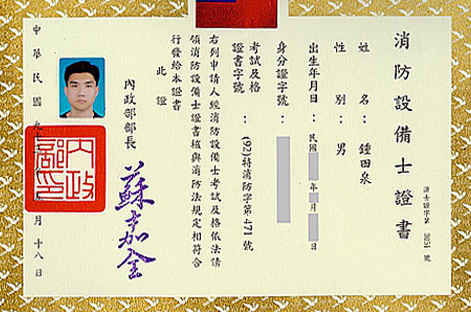 消防設備士證書
消士證字第 3051 號
姓名：鍾田泉
性別：男
出生年月日：民國 年 月 日
身分證字號：
考試及格
證書字號：(92)特消防字第471號
右列申請人經消防設備士考試及格依法請
領消防設備士證書核與消防法規定相符合
行發給本證書
此證
內政部部長
蘇嘉全
內政部印
中華民國九十 月十八日